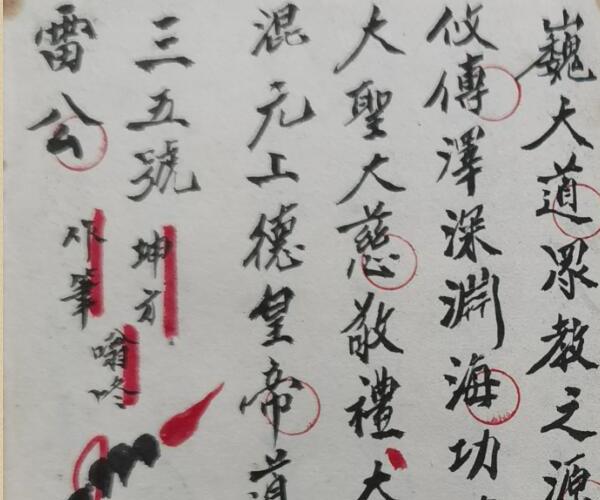 巍大道眾教之源
攸傅澤深淵海功
大聖大慈敬禮大
混元上德皇帝道
三五號
坤方
嗡咚
雷公
筆